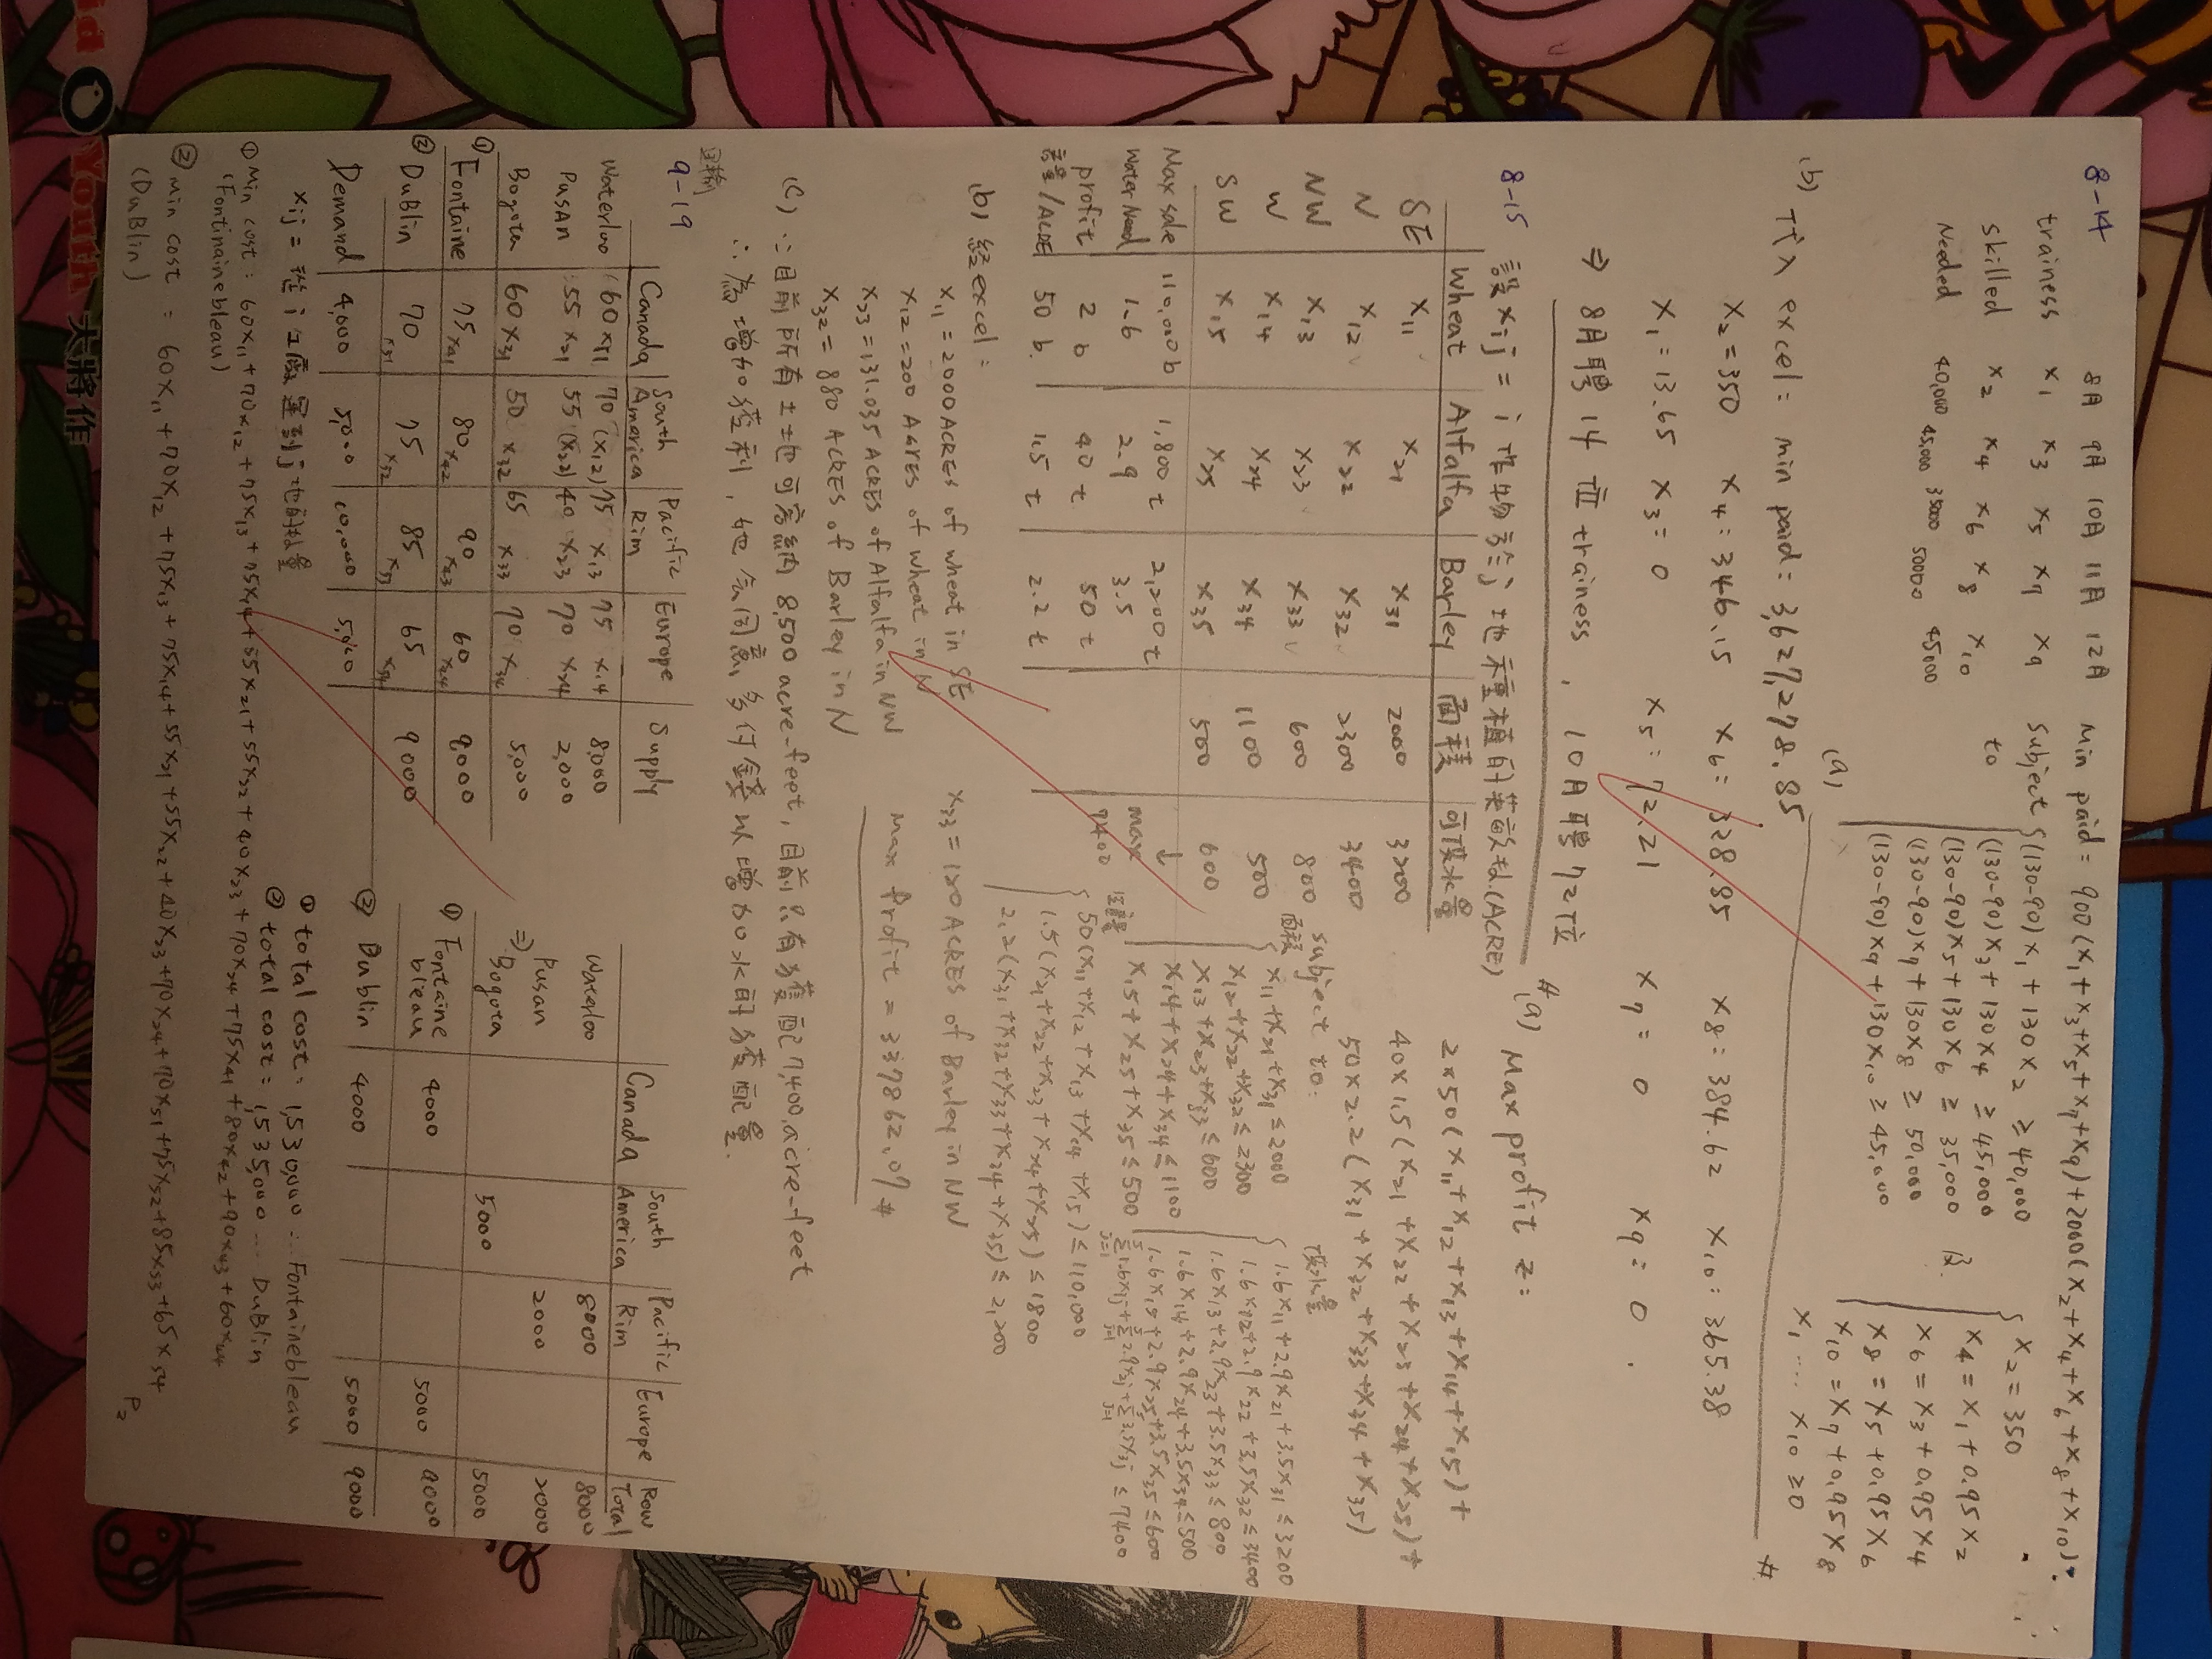 8-14
8月 9月 10月 11月 12月
trainess x₁ x₃ x₅ x₇ x₉
skilled x₂ x₄ x₆ x₈ x₁₀
Needed 40,000 45,000 35000 50000 45000
Min paid = 900(x₁+x₃+x₅+x₇+x₉)+2000(x₂+x₄+x₆+x₈+x₁₀)
subject to
(130-90)x₁ + 130x₂ ≥ 40,000
(130-90)x₃ + 130x₄ ≥ 45,000
(130-90)x₅ + 130x₆ ≥ 35,000
(130-90)x₇ + 130x₈ ≥ 50,000
(130-90)x₉ + 130x₁₀ ≥ 45,000
及
x₂ = 350
x₄ = x₁ + 0.95x₂
x₆ = x₃ + 0.95x₄
x₈ = x₅ + 0.95x₆
x₁₀ = x₇ + 0.95x₈
x₁ ... x₁₀ ≥ 0
#
(a)
(b) 代入 excel = min paid = 3,627,278.85
x₂ = 350 x₄ : 346.15 x₆ : 328.85 x₈ : 384.62 x₁₀ : 365.38
x₁ = 13.65 x₃ = 0 x₅ : 72.21 x₇ : 0 x₉ : 0 .
⇒ 8月聘 14 位 trainess , 10月聘 72位 #
8-15 設 xij = i 作物於 j 地種植的英畝數.(ACRE)
Wheat Alfalfa Barley 面積 可供水量
SE x₁₁ x₂₁ x₃₁ 2000 3200
N x₁₂ x₂₂ x₃₂ 2300 3400
NW x₁₃ x₂₃ x₃₃ 600 800
W x₁₄ x₂₄ x₃₄ 1100 500
SW x₁₅ x₂₅ x₃₅ 500 600
Max sale 110,000 b 1,800 t 2,200 t ↓
Water Need 1.6 2.9 3.5 max
profit 2 b 40 t 50 t 7400
/ACRE 50 b. 1.5 t 2.2 t
(a) Max profit z =
2×50(x₁₁+x₁₂+x₁₃+x₁₄+x₁₅)+
40×1.5(x₂₁+x₂₂+x₂₃+x₂₄+x₂₅)+
50×2.2(x₃₁+x₃₂+x₃₃+x₃₄+x₃₅)
subject to:
面積
x₁₁+x₂₁+x₃₁ ≤ 2000
x₁₂+x₂₂+x₃₂ ≤ 2300
x₁₃+x₂₃+x₃₃ ≤ 600
x₁₄+x₂₄+x₃₄ ≤ 1100
x₁₅+x₂₅+x₃₅ ≤ 500
供水量
1.6x₁₁+2.9x₂₁+3.5x₃₁ ≤ 3200
1.6x₁₂+2.9x₂₂+3.5x₃₂ ≤ 3400
1.6x₁₃+2.9x₂₃+3.5x₃₃ ≤ 800
1.6x₁₄+2.9x₂₄+3.5x₃₄ ≤ 500
1.6x₁₅+2.9x₂₅+3.5x₃₅ ≤ 600
Σ1.6x₁j+Σ2.9x₂j+Σ3.5x₃j ≤ 7400
50(x₁₁+x₁₂+x₁₃+x₁₄+x₁₅) ≤ 110,000
1.5(x₂₁+x₂₂+x₂₃+x₂₄+x₂₅) ≤ 1800
2.2(x₃₁+x₃₂+x₃₃+x₃₄+x₃₅) ≤ 2,200
(b) 経 excel =
x₁₁ = 2000 ACRES of wheat in SE
x₁₂ = 200 ACRES of wheat in N
x₂₃ = 131.035 ACRES of Alfalfa in NW
x₃₂ = 880 ACRES of Barley in N
x₃₃ = 120 ACRES of Barley in NW
Max Profit = 337862.07 #
(c) ∵目前所有土地可容納 8,500 acre-feet, 目前只有獲配 7,400 acre-feet
∴為增加獲利, 她会同意多付錢以增加水的獲配量.
運輸
9-19
Canada South America Pacific Rim Europe Supply
Waterloo 60 x₁₁ 70 (x₁₂) 75 x₁₃ 75 x₁₄ 8,000
PUSAN 55 x₂₁ 55 (x₂₂) 40 x₂₃ 70 x₂₄ 2,000
Bogota 60 x₃₁ 50 x₃₂ 65 x₃₃ 70 x₃₄ 5,000
① Fontaine 75 x₄₁ 80 x₄₂ 90 x₄₃ 60 x₄₄ 9000
② DuBlin 70 x₅₁ 75 x₅₂ 85 x₅₃ 65 x₅₄ 9000
Demand 4,000 5,000 10,000 5,000
⇒
Canada South America Pacific Rim Europe Row Total
Waterloo 8000 8000
Pusan 2000 2000
Bogota 5000 5000
① Fontaine bleau 4000 5000 9000
② Dublin 4000 5000 9000
xij = 從 i 工廠運到 j 地的數量
① total cost = 1,530,000 ... Fontainebleau
② total cost = 1,535,000 ... DuBlin
① Min cost : 60x₁₁+70x₁₂+75x₁₃+75x₁₄+55x₂₁+55x₂₂+40x₂₃+70x₂₄+75x₄₁+80x₄₂+90x₄₃+60x₄₄
(Fontinainebleau)
② Min cost = 60x₁₁+70x₁₂+75x₁₃+75x₁₄+55x₂₁+55x₂₂+40x₂₃+70x₂₄+70x₅₁+75x₅₂+85x₅₃+65x₅₄
(DuBlin)
P₂
id Youth 大將作